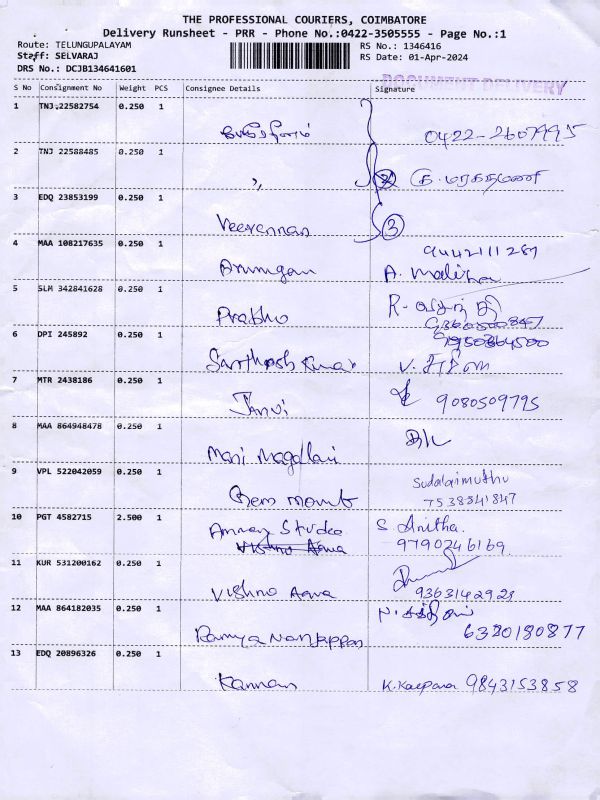 THE PROFESSIONAL COURIERS, COIMBATORE
Delivery Runsheet - PRR - Phone No.:0422-3505555 - Page No.:1
Route: TELUNGUPALAYAM
RS No.: 1346416
Staff: SELVARAJ
RS Date: 01-Apr-2024
DRS No.: DCJB134641601
DOCUMENT DELIVERY
S No Consignment No Weight PCS Consignee Details Signature
1 TNJ 22582754 0.250 1
0422-2607995
2 TNJ 22588485 0.250 1
,, 2
3 EDQ 23853199 0.250 1
Veerannan 3
4 MAA 108217635 0.250 1
Arumugam A.
5 SLM 342841628 0.250 1
Prabhu R.
6 DPI 245892 0.250 1
Santhosh Kumar V.
7 MTR 2438186 1 0.250
Janvi 9080509795
8 MAA 864948478 0.250 1
Mani
9 VPL 522042059 0.250 1
Sudalaimuthu
7538841847
10 PGT 4582715 2.500 1
Studio S. Anitha.
Vishno Aqua 9790246169
11 KUR 531200162 0.250 1
Vishno Aqua
12 MAA 864182035 0.250 1
Ramya Nanjappan 6380180877
13 EDQ 20896326 0.250 1
Kannan K. Kalpana 9843153858